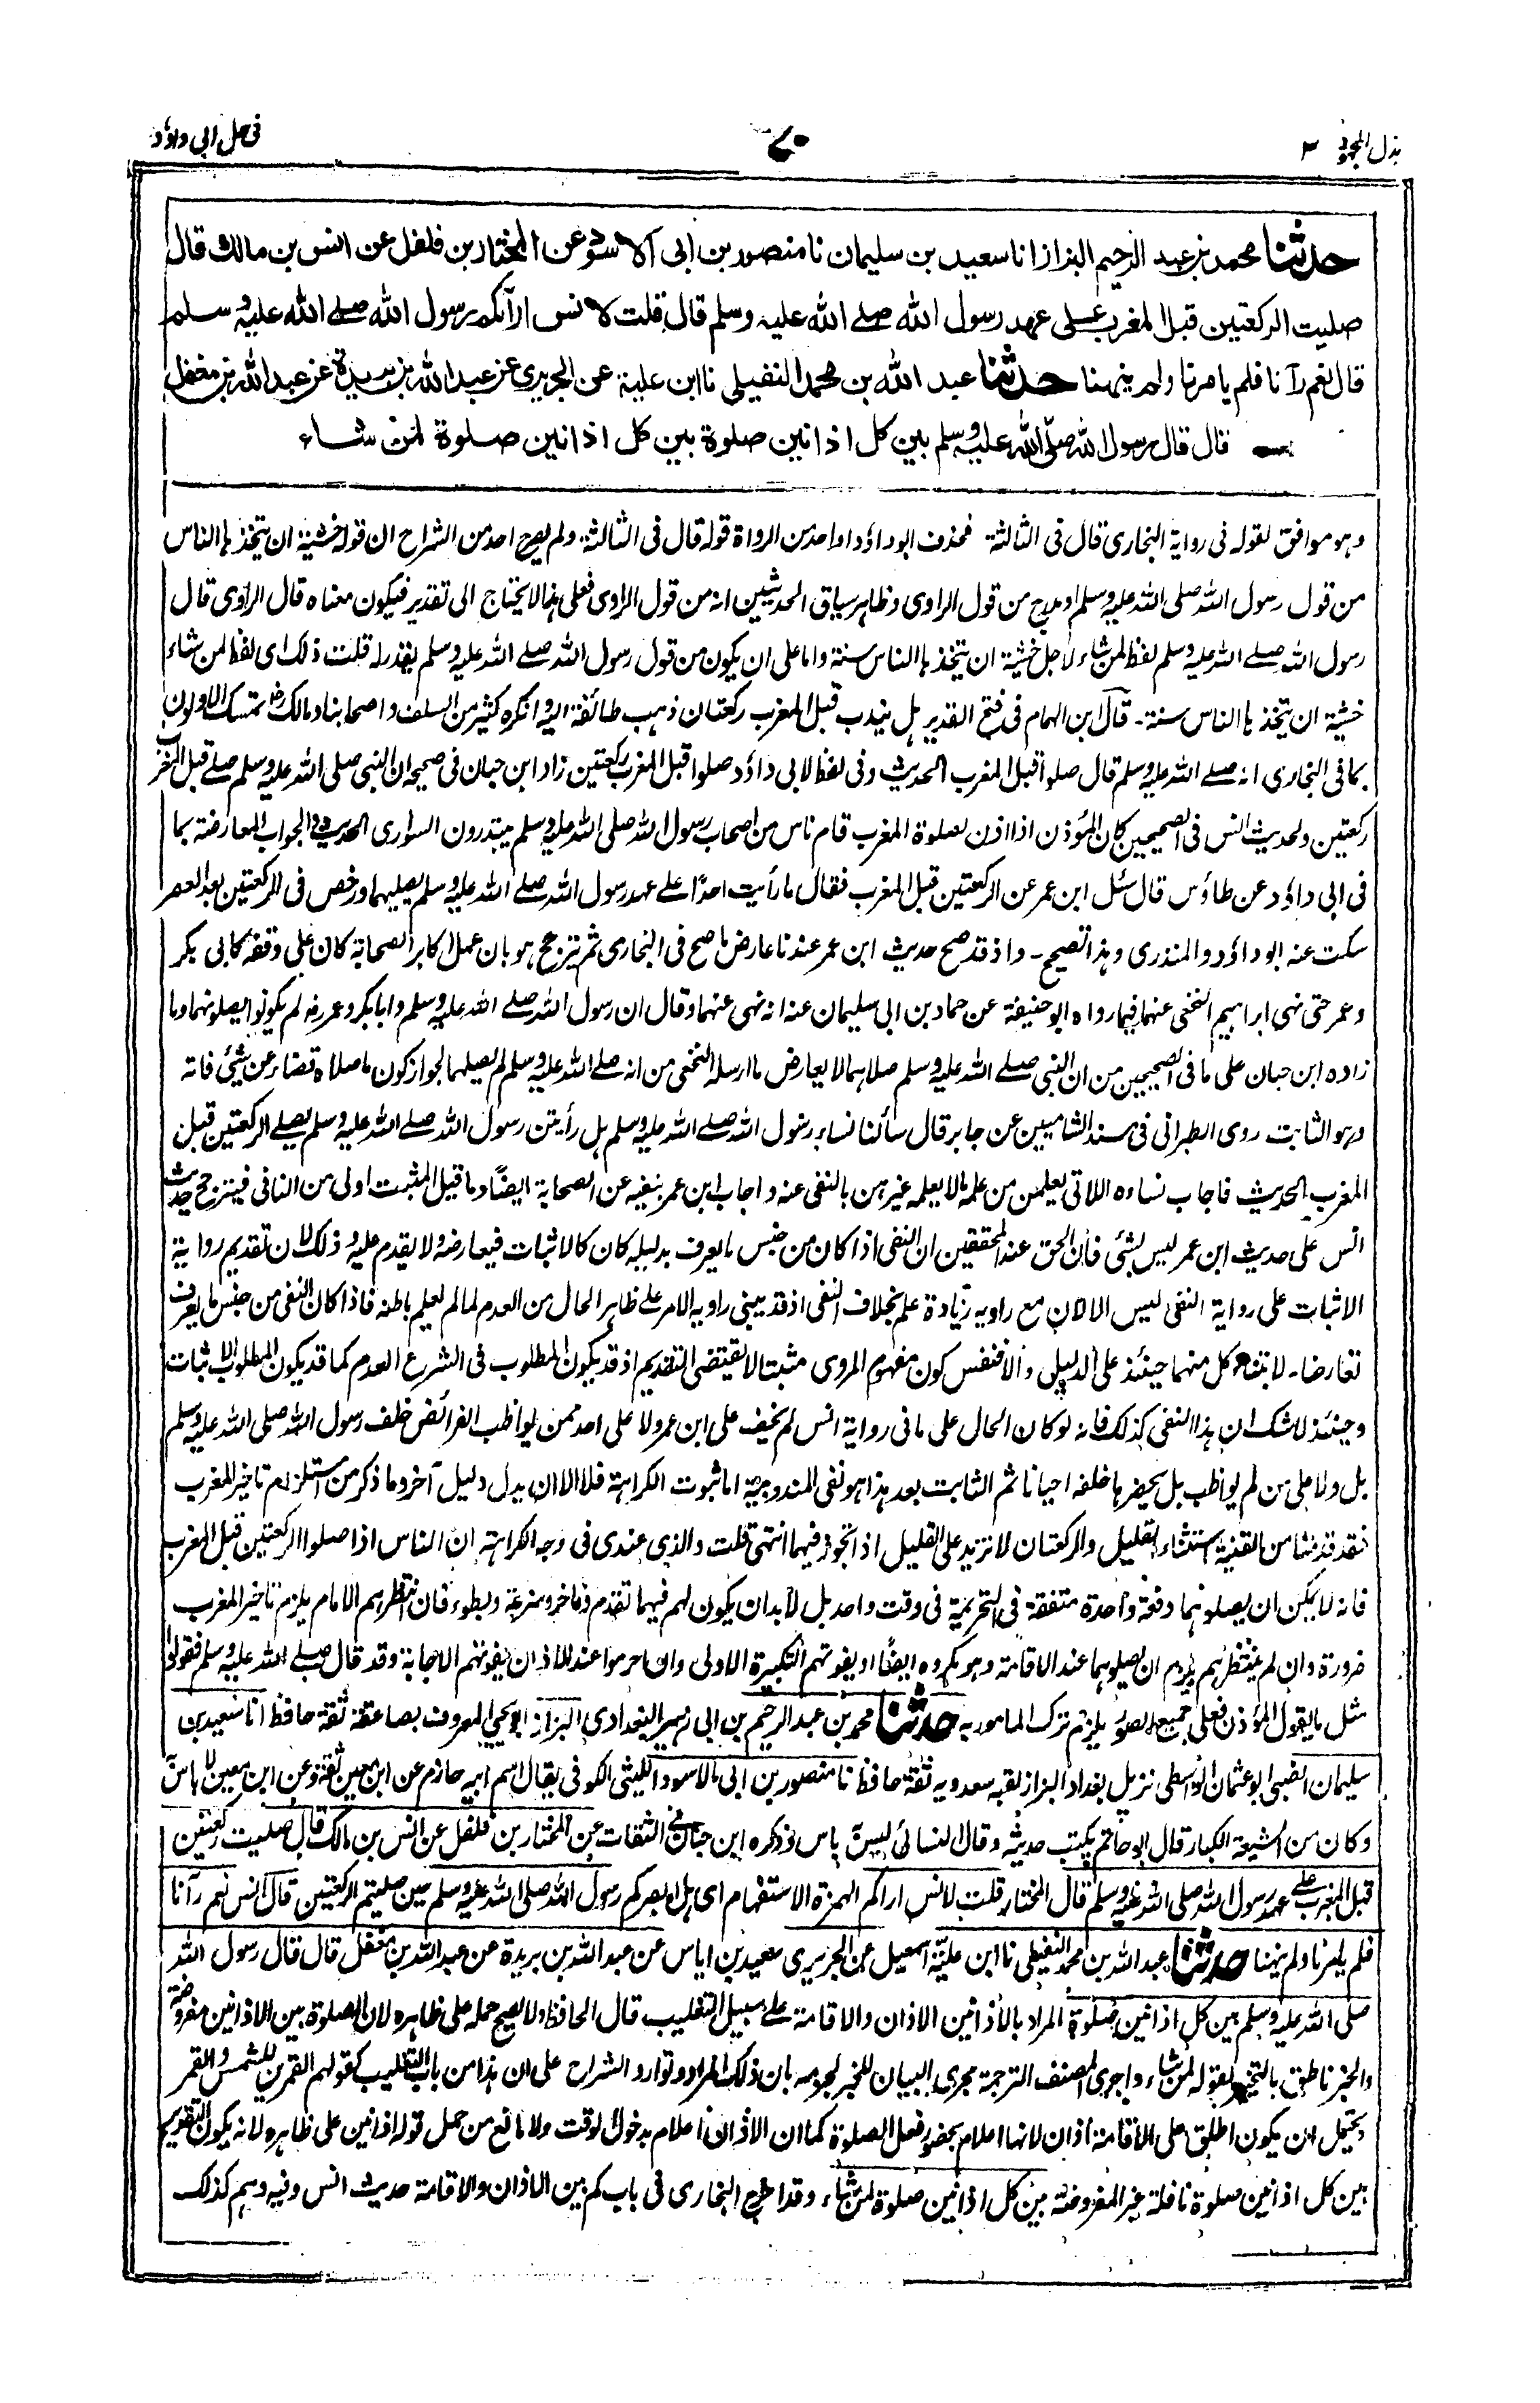 بذل المجهود ٣
٧٠
فى حل ابى داؤد
حدثنا محمد بن عبد الرحيم البزاز انا سعيد بن سليمان نا منصور بن ابى الاسود عن المختار بن فلفل عن انس بن مالك قال
صليت الركعتين قبل المغرب على عهد رسول الله صلے الله عليه وسلم قال قلت لانس ارآكم رسول الله صلے الله عليه وسلم
قال نعم رآنا فلم يامرنا ولم ينهنا حدثنا عبد الله بن محمد النفيلى نا ابن علية عن الجريرى عن عبد الله بن بريدة عن عبد الله بن مغفل
قال قال رسول الله صلى الله عليه وسلم بين كل اذانين صلوة بين كل اذانين صلوة لمن شاء
وهو موافق لقوله فى رواية البخارى قال فى الثالثة فحذف ابو داؤد او احد من الرواة قوله قال فى الثالثة، ولم يصرح احد من الشراح ان قوله خشية ان يتخذها الناس
من قول رسول الله صلى الله عليه وسلم او مدرج من قول الراوى وظاهر سياق المحدثين انه من قول الراوى فعلى هذا لا يحتاج الى تقدير فيكون معناه قال الراوى قال
رسول الله صلے الله عليه وسلم لفظ لمن شاء لاجل خشية ان يتخذها الناس سنة واما على ان يكون من قول رسول الله صلے الله عليه وسلم يقدر له قلت ذلك اى لفظ لمن شاء
خشية ان يتخذها الناس سنة۔ قال ابن الهمام فى فتح القدير هل يندب قبل المغرب ركعتان ذهب طائفة اليه وانكره كثير من السلف واصحابنا ومالك رض تمسك الاولون
بما فى البخارى انه صلے الله عليه وسلم قال صلوا قبل المغرب الحديث وفى لفظ لابى داؤد صلوا قبل المغرب ركعتين زاد ابن حبان فى صحيحه ان النبى صلى الله عليه وسلم صلے قبل المغرب
ركعتين ولحديث انس فى الصحيحين كان المؤذن اذا اذن لصلوة المغرب قام ناس من اصحاب رسول الله صلى الله عليه وسلم يبتدرون السوارى الحديث والجواب المعارضة بما
فى ابى داؤد عن طاؤس قال سئل ابن عمر عن الركعتين قبل المغرب فقال ما رأيت احدًا على عهد رسول الله صلے الله عليه وسلم يصليهما ورخص فى الركعتين بعد العصر
سكت عنه ابو داؤد والمنذرى وهذا تصحيح۔ واذ قد صح حديث ابن عمر عندنا عارض ما صح فى البخارى ثم يترجح هو بان عمل اكابر الصحابة كان على وفقه كابى بكر
وعمر حتى نهى ابراهيم النخعى عنهما فيما رواه ابو حنيفة عن حماد بن ابى سليمان عنه انه نهى عنهما وقال ان رسول الله صلے الله عليه وسلم وابا بكر وعمر رض لم يكونوا يصلونهما وما
زاده ابن حبان على ما فى الصحيحين من ان النبى صلے الله عليه وسلم صلاهما لا يعارض ما ارسله النخعى من انه صلے الله عليه وسلم لم يصلهما لجواز كون ما صلاه قضاء عن شئ فاته
وهو الثابت روى الطبرانى فى مسند الشاميين عن جابر قال سألنا نساء رسول الله صلے الله عليه وسلم هل رأيتن رسول الله صلے الله عليه وسلم يصلے الركعتين قبل
المغرب الحديث فاجاب نساءه اللاتى يعلمن من علمه مالا يعلمه غيرهن بالنفى عنه واجاب ابن عمر بنفيه عن الصحابة ايضًا وما قيل المثبت اولى من النافى فيترجح حديث
انس على حديث ابن عمر ليس بشئى فان الحق عند المحققين ان النفى اذا كان من جنس ما يعرف بدليله كان كالاثبات فيعارضه ولا يقدم عليه وذلك لان تقديم رواية
الاثبات على رواية النفى ليس الا لان مع راويه زيادة علم بخلاف النفى اذ قد يبنى راويه الامر على ظاهر الحال من العدم لما لم يعلم باطنه فاذا كان النفى من جنس ما يعرف
تعارضا۔ لابتناء كل منهما حينئذ على الدليل والا فنفس كون مفهوم المروى مثبتا لا يقتضى التقديم اذ قد يكون المطلوب فى الشرع العدم كما قد يكون المطلوب الاثبات
وحينئذ لا شك ان هذا النفى كذلك فانه لو كان الحال على ما فى رواية انس لم يخف على ابن عمر ولا على احد ممن يواظب الفرائض خلف رسول الله صلى الله عليه وسلم
بل ولا على من لم يواظب بل يحضرها خلفه احيانا ثم الثابت بعد هذا هو نفى المندوبية اما ثبوت الكراهة فلا الا ان يدل دليل آخر وما ذكر من استلزام تاخير المغرب
فقد قدمنا من القنية استثناء القليل والركعتان لا تزيد على القليل اذا تجوز فيهما انتهى قلت والذى عندى فى وجه الكراهة ان الناس اذا صلوا الركعتين قبل المغرب
فانه لا يمكن ان يصلونهما دفعة واحدة متفقة فى التحريمة فى وقت واحد بل لا بد ان يكون لهم فيهما تقدم وتاخر وسرعة وبطوء فان انتظرهم الامام يلزم تاخير المغرب
ضرورة وان لم ينتظرهم يلزم ان يصلوهما عند الاقامة وهو مكروه ايضًا او يفوتهم التكبيرة الاولى وان احرموا عند الاذان يفوتهم الاجابة وقد قال صلے الله عليه وسلم فقولوا
مثل ما يقول المؤذن فعلى جميع الصور يلزم ترك المامور به حدثنا محمد بن عبد الرحيم بن ابى زهير البغدادى البزاز ابو يحيى المعروف بصاعقة ثقة حافظ انا سعيد بن
سليمان الضبى ابو عثمان الواسطى نزيل بغداد البزاز لقبه سعدويه ثقة حافظ نا منصور بن ابى الاسود الليثى الكوفى يقال اسم ابيه حازم عن ابن معين ثقة وعن ابن معين لا باس به
وكان من الشيعة الكبار قال ابو حاتم يكتب حديثه وقال النسائى ليس به باس وذكره ابن حبان فى الثقات عن المختار بن فلفل عن انس بن مالك قال صليت ركعتين
قبل المغرب على عهد رسول الله صلى الله عليه وسلم قال المختار قلت لانس اراكم الهمزة الاستفهام اى هل ابصركم رسول الله صلى الله عليه وسلم حين صليتم الركعتين قال انس نعم رآنا
فلم يامرنا ولم ينهنا حدثنا عبد الله بن محمد النفيلى نا ابن علية اسمعيل عن الجريرى سعيد بن اياس عن عبد الله بن بريدة عن عبد الله بن مغفل قال قال رسول الله
صلى الله عليه وسلم بين كل اذانين صلوة المراد بالاذانين الاذان والاقامة على سبيل التغليب قال الحافظ ولا يصح حمله على ظاهره لان الصلوة بين الاذانين مفروضة
والخبر ناطق بالتخيير لقوله لمن شاء واجرى المصنف الترجمة مجرى البيان للخبر لجزمه بان ذلك المراد وتوارد الشراح على ان هذا من باب التغليب كقولهم القمرين للشمس والقمر
يحتمل ان يكون اطلق على الاقامة اذان لانها اعلام بحضور فعل الصلوة كما ان الاذان اعلام بدخول الوقت ولا مانع من حمل قوله اذانين على ظاهره لانه يكون التقدير
بين كل اذانين صلوة نافلة غير المفروضة بين كل اذانين صلوة لمن شاء وقد اخرج البخارى فى باب كم بين الاذان والاقامة حديث انس وفيه وهم كذلك